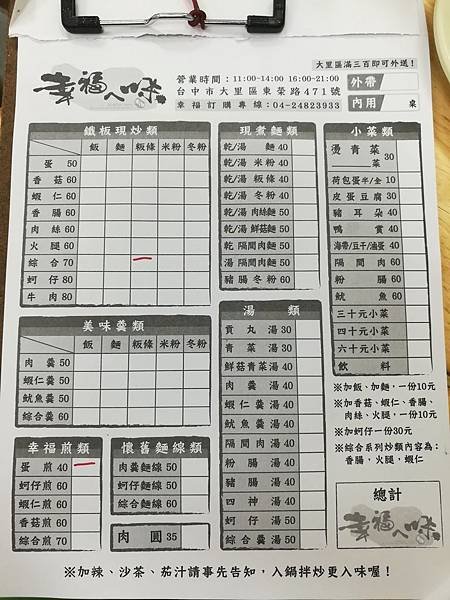 大里區滿三百即可外送！
幸福へ味
營業時間：11:00-14:00 16:00-21:00
台中市大里區東榮路471號
幸福訂購專線：04-24823933
外帶
內用 桌
鐵板現炒類
飯 麵 粄條 米粉 冬粉
蛋 50
香菇 60
蝦仁 60
香腸 60
肉絲 60
火腿 60
綜合 70
蚵仔 80
牛肉 80
美味羹類
飯 麵 粄條 米粉 冬粉
肉羹 50
蝦仁羹 50
魷魚羹 50
綜合羹 60
幸福煎類
蛋煎 40
蚵仔煎 60
蝦仁煎 60
香菇煎 60
綜合煎 70
懷舊麵線類
肉羹麵線 50
蚵仔麵線 50
綜合麵線 60
肉圓 35
現煮麵類
乾/湯 麵 40
乾/湯 米粉 40
乾/湯 粄條 40
乾/湯 冬粉 40
乾/湯 肉絲麵 50
乾/湯 鮮菇麵 50
乾 隔間肉麵 50
湯 隔間肉麵 50
豬腸冬粉 60
湯類
貢丸湯 30
青菜湯 30
鮮菇青菜湯 40
肉羹湯 40
蝦仁羹湯 50
魷魚羹湯 50
隔間肉湯 40
粉腸湯 40
豬腸湯 40
四神湯 40
蚵仔湯 50
綜合羹湯 50
小菜類
燙青菜 30
菜
荷包蛋半/全 10
皮蛋豆腐 30
豬耳朵 40
鴨賞 40
海帶/豆干/滷蛋 40
隔間肉 60
粉腸 60
魷魚 60
三十元小菜
四十元小菜
六十元小菜
飲料
※加飯、加麵，一份10元
※加香菇、蝦仁、香腸、
肉絲、火腿，一份10元
※加蚵仔一份30元
※綜合系列炒類內容為：
香腸，火腿，蝦仁
總計
幸福へ味
※加辣、沙茶、茄汁請事先告知，入鍋拌炒更入味喔！